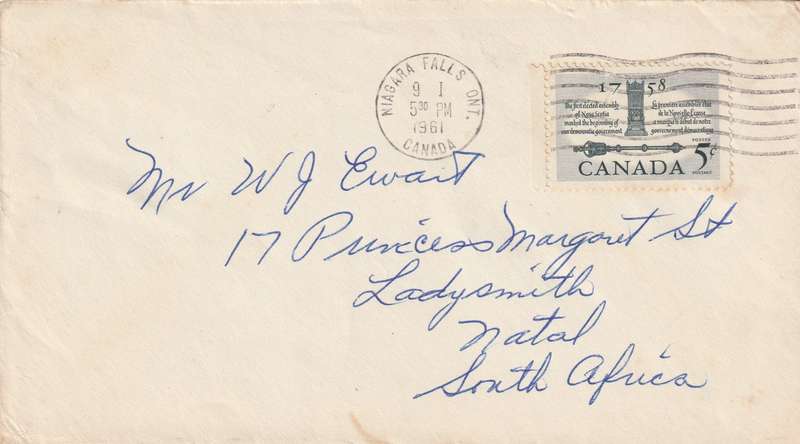 NIAGARA FALLS ONT.
9 I
5 30 PM
1961
CANADA
17 58
The first elected assembly
of Nova Scotia
marked the beginning of
our democratic government
La première assemblée élue
de la Nouvelle-Écosse
a marqué le début de notre
gouvernement démocratique
POSTES
CANADA 5¢
POSTAGE
Mr W J Ewart
17 Princess Margaret St
Ladysmith
Natal
South Africa